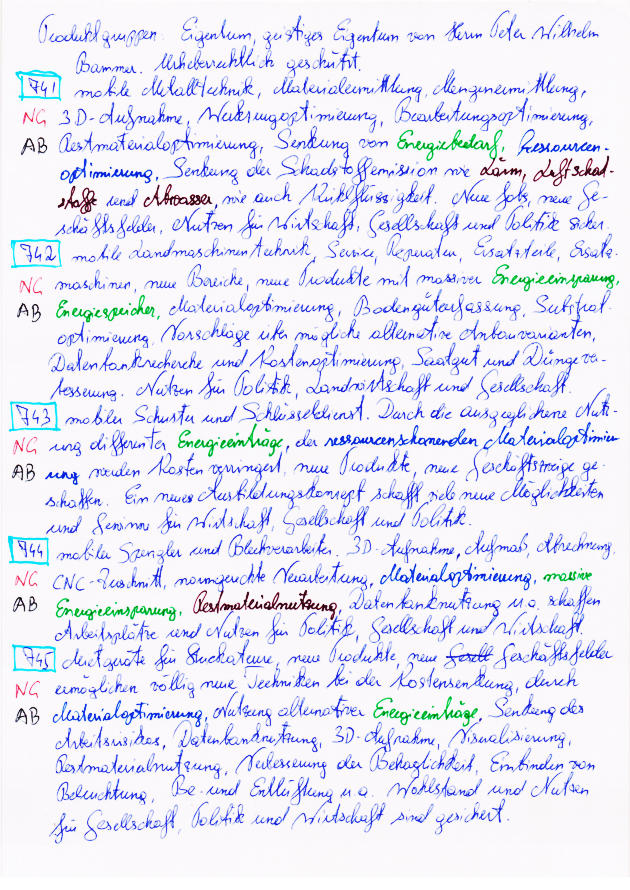 Produktgruppen. Eigentum, geistiges Eigentum von Herrn Peter Wilhelm
Bammer. Urheberrechtlich geschützt.
741 mobile Metalltechnik, Materialermittlung, Mengenermittlung,
NG 3D-Aufnahme, Werkzeugoptimierung, Bearbeitungsoptimierung,
AB Restmaterialoptimierung, Senkung von Energiebedarf, Ressourcen-
optimierung, Senkung der Schadstoffemission wie Lärm, Luftschad-
stoffe und Abwasser, wie auch Kühlflüssigkeit. Neue Jobs, neue Ge-
schäftsfelder, Nutzen für Wirtschaft, Gesellschaft und Politik sicher.
742 mobile Landmaschinentechnik, Service, Reparatur, Ersatzteile, Ersatz-
NG maschinen, neue Bereiche, neue Produkte mit massiver Energieeinsparung,
AB Energiespeicher, Materialoptimierung, Bodengüterfassung, Substrat-
optimierung. Vorschläge über mögliche alternative Anbauvarianten,
Datenbankrecherche und Kostenoptimierung, Saatgut und Düngever-
besserung. Nutzen für Politik, Landwirtschaft und Gesellschaft.
743 mobiler Schuster und Schlüsseldienst. Durch die ausgeglichene Nutz-
NG ung differenter Energieeinträge, der ressourcenschonenden Materialoptimier-
AB ung werden Kosten verringert, neue Produkte, neue Geschäftszweige ge-
schaffen. Ein neues Ausbildungskonzept schafft viele neue Möglichkeiten
und Gewinne für Wirtschaft, Gesellschaft und Politik.
744 mobiler Spengler und Blechverarbeiter. 3D-Aufnahme, Aufmaß, Abrechnung.
NG CNC-Zuschnitt, normgerechte Verarbeitung, Materialoptimierung, massive
AB Energieeinsparung, Restmaterialnutzung, Datenbanknutzung u.a. schaffen
Arbeitsplätze und Nutzen für Politik, Gesellschaft und Wirtschaft.
745 Mietgeräte für Stuckateure, neue Produkte, neue Geschäftsfelder
NG ermöglichen völlig neue Techniken bei der Kostensenkung, durch
AB Materialoptimierung, Nutzung alternativer Energieeinträge, Senkung des
Arbeitsrisikos, Datenbanknutzung, 3D-Aufnahme, Visualisierung,
Restmaterialnutzung, Verbesserung der Behaglichkeit, Einbinden von
Beleuchtung, Be- und Entlüftung u.a. Wohlstand und Nutzen
für Gesellschaft, Politik und Wirtschaft sind gesichert.